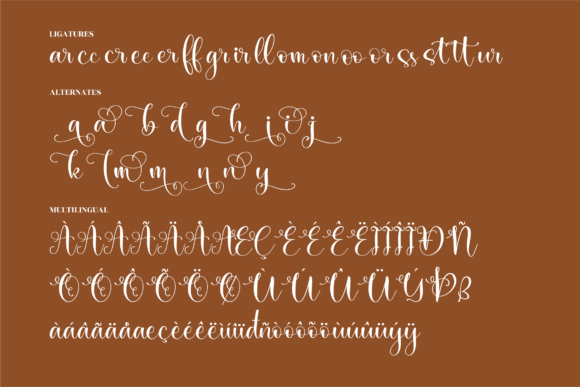 LIGATURES
ar cc cr ee er ff gr ir ll om on oo or ss st tt ur
ALTERNATES
q a b d g h i i j
k l m m n n y
MULTILINGUAL
ÀÁÂÃÄÅÆÇÈÉÊËÌÍÎÏÐÑ
ÒÓÔÕÖØÙÚÛÜÝÞß
àáâãäåæçèéêëìíîïđñòóôõöùúûüýÿ